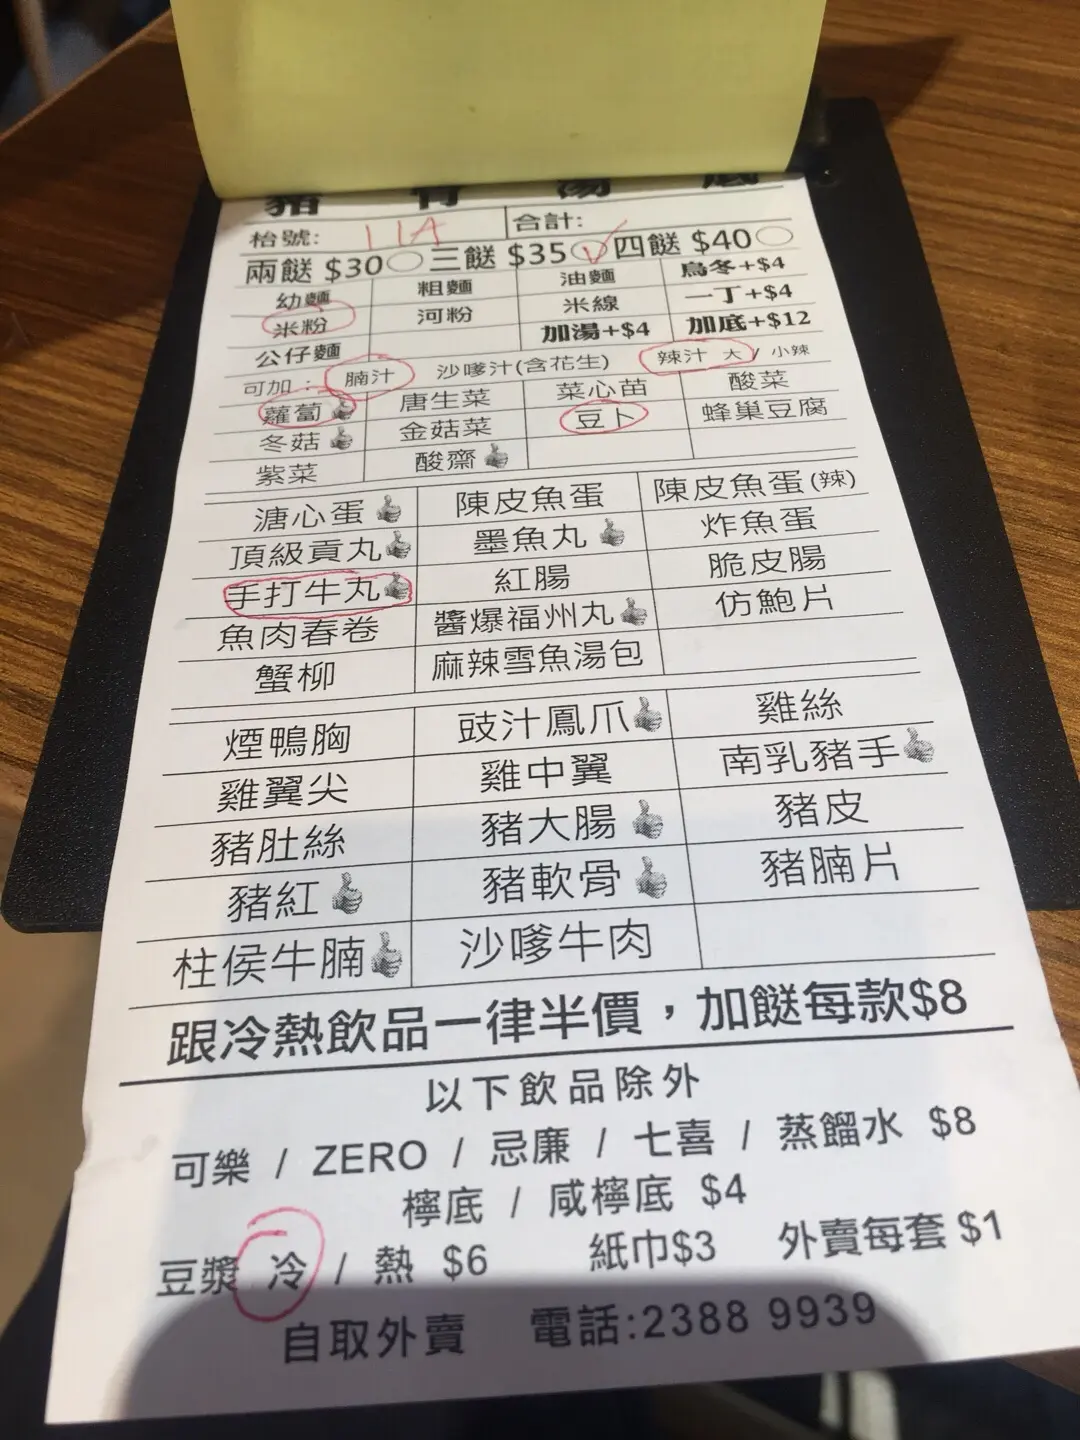 豬骨湯底
枱號: 11A 合計:
兩餸 $30 三餸 $35 ✓ 四餸 $40
幼麵 粗麵 油麵 烏冬+$4
米粉 河粉 米線 一丁+$4
公仔麵 加湯+$4 加底+$12
可加: 腩汁 沙嗲汁(含花生) 辣汁 大 / 小辣
蘿蔔 唐生菜 菜心苗 酸菜
冬菇 金菇菜 豆卜 蜂巢豆腐
紫菜 酸齋
溏心蛋 陳皮魚蛋 陳皮魚蛋(辣)
頂級貢丸 墨魚丸 炸魚蛋
手打牛丸 紅腸 脆皮腸
魚肉春卷 醬爆福州丸 仿鮑片
蟹柳 麻辣雪魚湯包
煙鴨胸 豉汁鳳爪 雞絲
雞翼尖 雞中翼 南乳豬手
豬肚絲 豬大腸 豬皮
豬紅 豬軟骨 豬腩片
柱侯牛腩 沙嗲牛肉
跟冷熱飲品一律半價，加餸每款$8
以下飲品除外
可樂 / ZERO / 忌廉 / 七喜 / 蒸餾水 $8
檸底 / 咸檸底 $4
豆漿 冷 / 熱 $6 紙巾$3 外賣每套 $1
自取外賣 電話:2388 9939